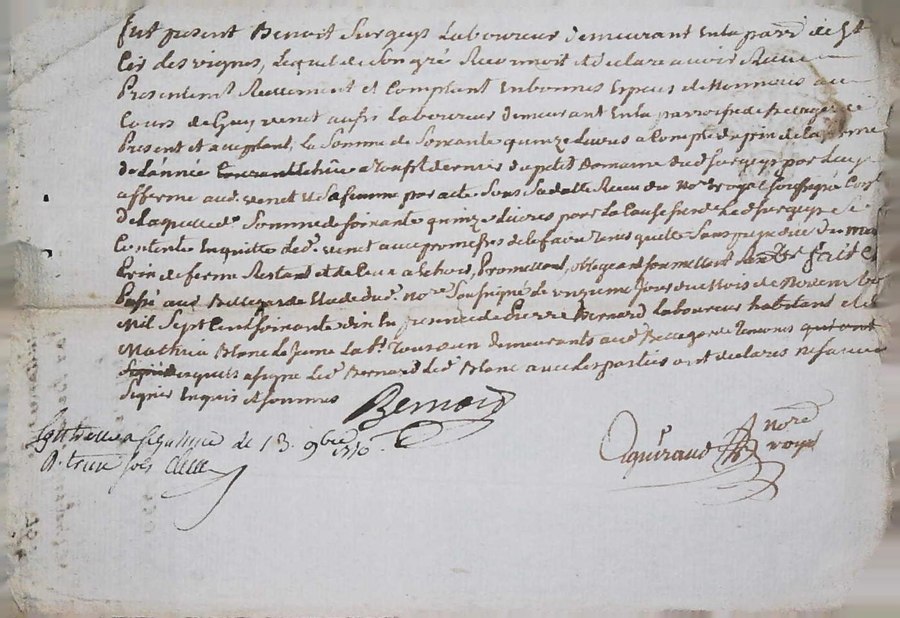 fut present Benoit Surgeys Laboureur demeurant en la parr.e de St
Cir des vignes, Lequel de son gré Reconnoit et declare avoir Receu
Presentemt Reellement et Comptant En bonnes Especes de Monnoies au
Cours de Guy venet aussy Laboureur demeurant En la parroisse de Bellegarde
Present et acceptant, la Somme de Soixante quinze Livres a Compte du prix de la ferme
de L'année du petit Domaine dud. Surgeys par luy
afferme aud. venet et Sa femme par acte Sous Sa datte Receu du No.re Royal soussigné
De laquelle d.e Somme de soixante quinze Livres pour la Cause susd. Led. Surgeys Se
Contente En quitte led. venet avec promesses de le faire tenir quitte Sans prejudice du
Prix de ferme Restant et de Ceux a Echoir, Promettant, obligeant soumettant Renon.t fait et
Passé aud. Bellegarde Etude du d. No.re Soussigné Le onzieme Jour du Mois de Novembre
Mil Sept Cent Soixante dix En presence de Pierre Bernard Laboureur habitant et de
Mathieu Blanc Le Jeune Lab.r demeurants aud. Bellegarde Temoins
a signe Led. Bernard Led. Blanc avec les parties ont declarés ne savoir
Signer Enquis et sommes
Bernard
Controllé a le 13. 9bre 1770.
R. treize sols
Quiraud No.re
royal